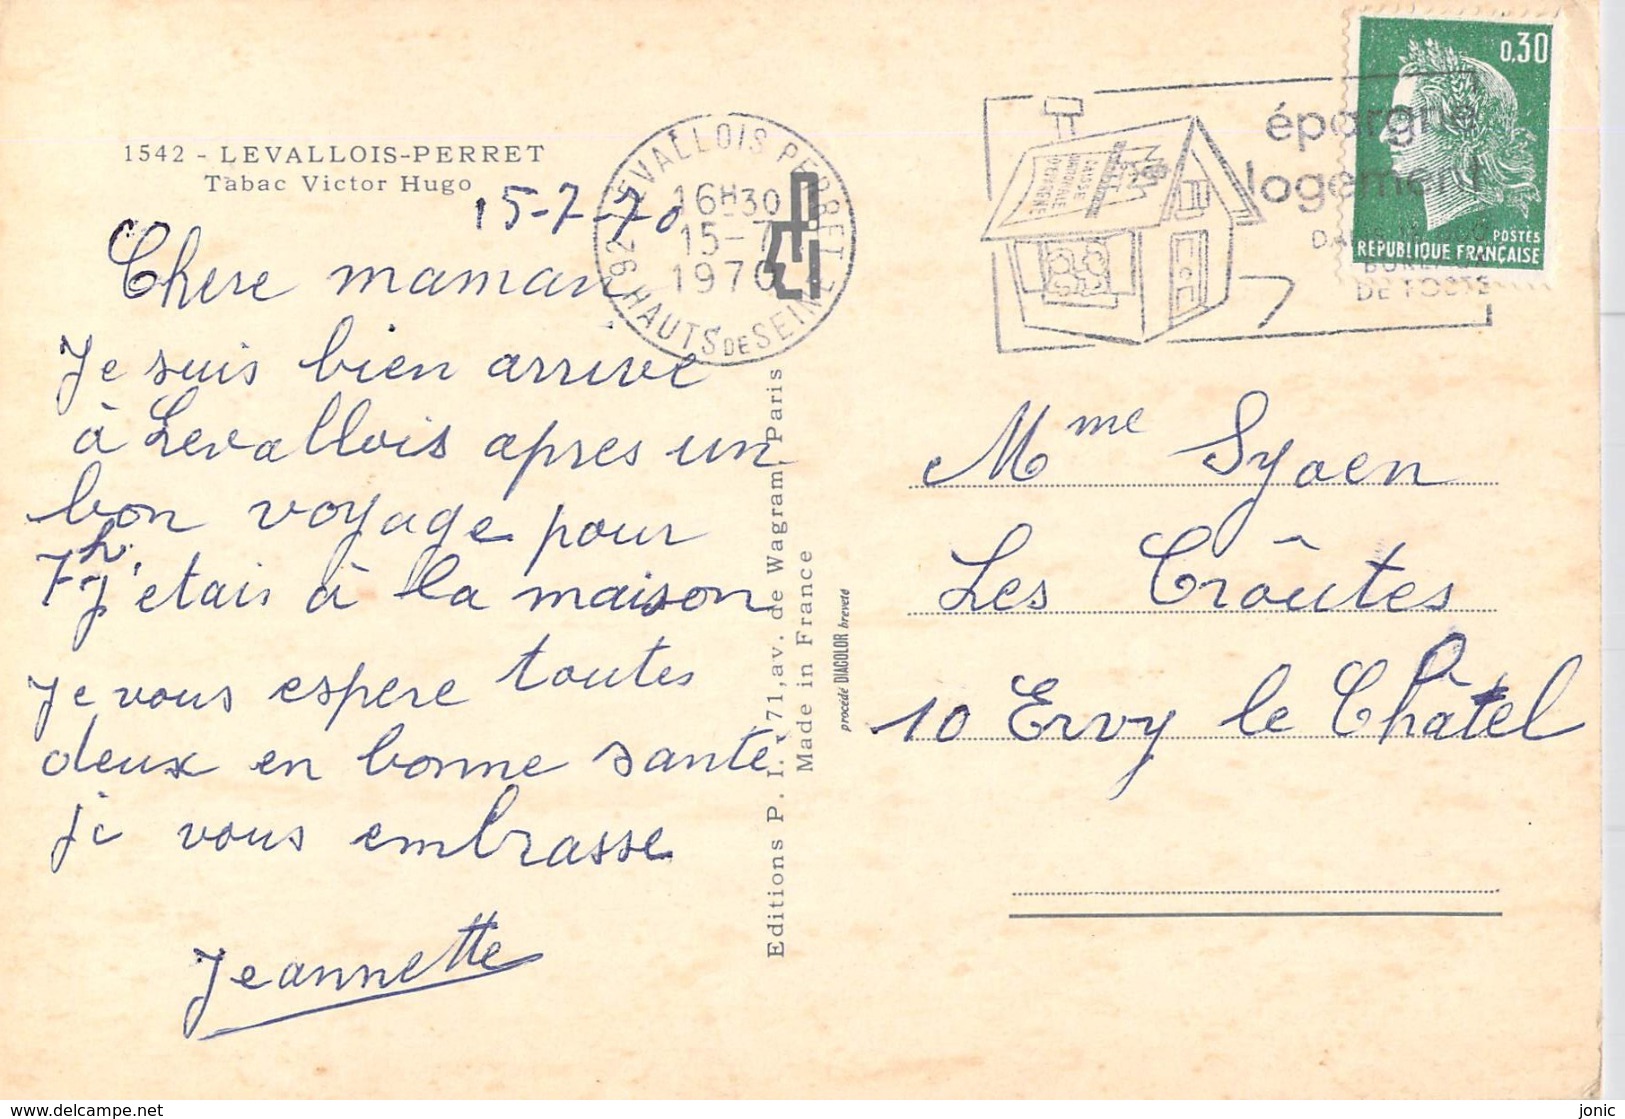 1542 - LEVALLOIS-PERRET
Tabac Victor Hugo
15-7-70
Chere maman
Je suis bien arrive
à Levallois apres un
bon voyage pour
7h j'etais à la maison
Je vous espere toutes
deux en bonne sante
je vous embrasse
Jeannette
LEVALLOIS PERRET
16H30
15-7
1970
92 HAUTS DE SEINE
Editions P. I. 71, av. de Wagram, Paris
Made in France
procédé DIACOLOR breveté
épargne
logement
DE POSTE
0,30
POSTES
REPUBLIQUE FRANÇAISE
Mme Syoen
Les Croûtes
10 Ervy le Châtel
www.delcampe.net
jonic